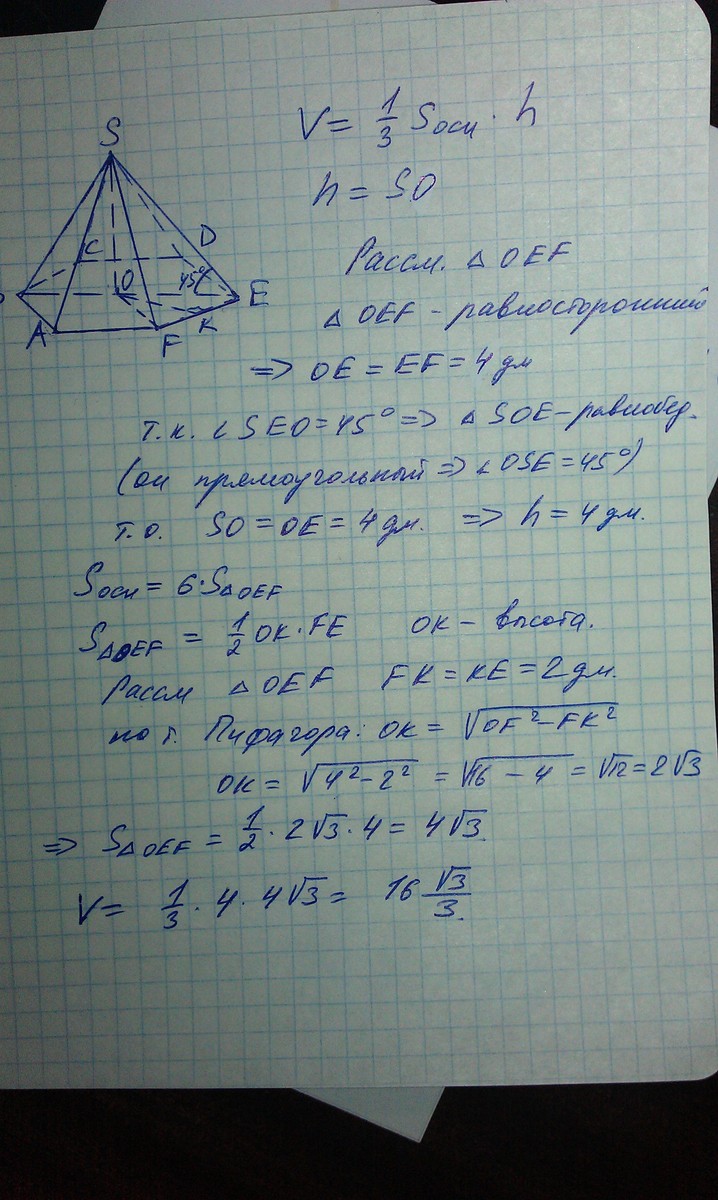 S
C
D
O
45°
E
A
F
K
V = 1/3 Sосн · h
h = SO
Рассм. △ OEF
△ OEF - равносторонний
=> OE = EF = 4 дм
т.к. ∠SEO = 45° => △ SOE - равнобед.
(он прямоугольный => ∠OSE = 45°)
т.о. SO = OE = 4 дм. => h = 4 дм.
Sосн = 6·S△OEF
S△OEF = 1/2 OK · FE OK - высота.
Рассм △ OEF FK = KE = 2 дм.
по т. Пифагора: OK = √(OF² - FK²)
OK = √(4² - 2²) = √(16 - 4) = √12 = 2√3
=> S△OEF = 1/2 · 2√3 · 4 = 4√3
V = 1/3 · 4 · 4√3 = 16 √3/3.